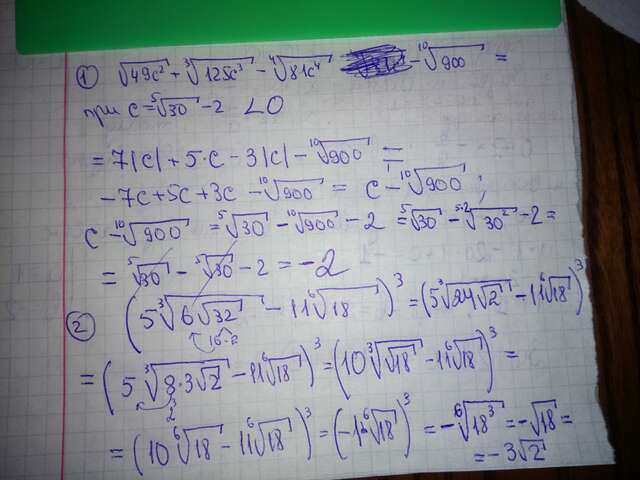 ① √49c² + ³√125c³ - ⁴√81c⁴ - ¹⁰√900 =
при c = ⁵√30 - 2 < 0
= 7|c| + 5·c - 3|c| - ¹⁰√900 =
-7c + 5c + 3c - ¹⁰√900 = c - ¹⁰√900,
c - ¹⁰√900 = ⁵√30 - ¹⁰√900 - 2 = ⁵√30 - ⁵·²√30² - 2 =
= ⁵√30 - ⁵√30 - 2 = -2
② (5 ³√6√32 - 11 ⁶√18)³ = (5 ³√24√2 - 11 ⁶√18)³
= (5 ³√8·3√2 - 11 ⁶√18)³ = (10 ³√√18 - 11 ⁶√18)³ =
= (10 ⁶√18 - 11 ⁶√18)³ = (-1 ⁶√18)³ = - ⁶√18³ = -√18 =
= -3√2